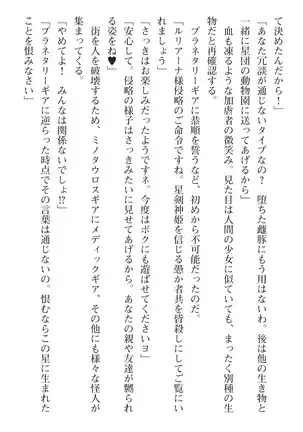 て決めたんだから！」
「あなた冗談が通じないタイプなの？　堕ちた雌豚にもう用はないわ。後は他の生き物と
一緒に星団の動物園に送ってあげるから」
　血も凍るような加虐者の微笑み。見た目は人間の少女に似ていても、まったく別種の生
物だと再確認する。
　プラネタリーギアに恭順を誓うなど、初めから不可能だったのだ。
「ルリアーナ様侵略のご命令ですね。星剣神姫を信じる愚か者共を皆殺しにしてご覧にい
れましょう」
「さっきはお楽しみだったようですネ。今度はボクにも遊ばせてくださいヨ」
「安心して。侵略の様子はさっきみたいに見せてあげるから。あなたの親や友達が嬲られ
る姿をね♥」
　街を人を破壊するため、ミノタウロスギアにメディックギア、その他にも様々な怪人が
集まってくる。
「やめてよ！　みんなは関係ないでしょ!?」
「プラネタリーギアに逆らった時点でその言葉は通じないの。恨むならこの星に生まれた
ことを恨みなさい」